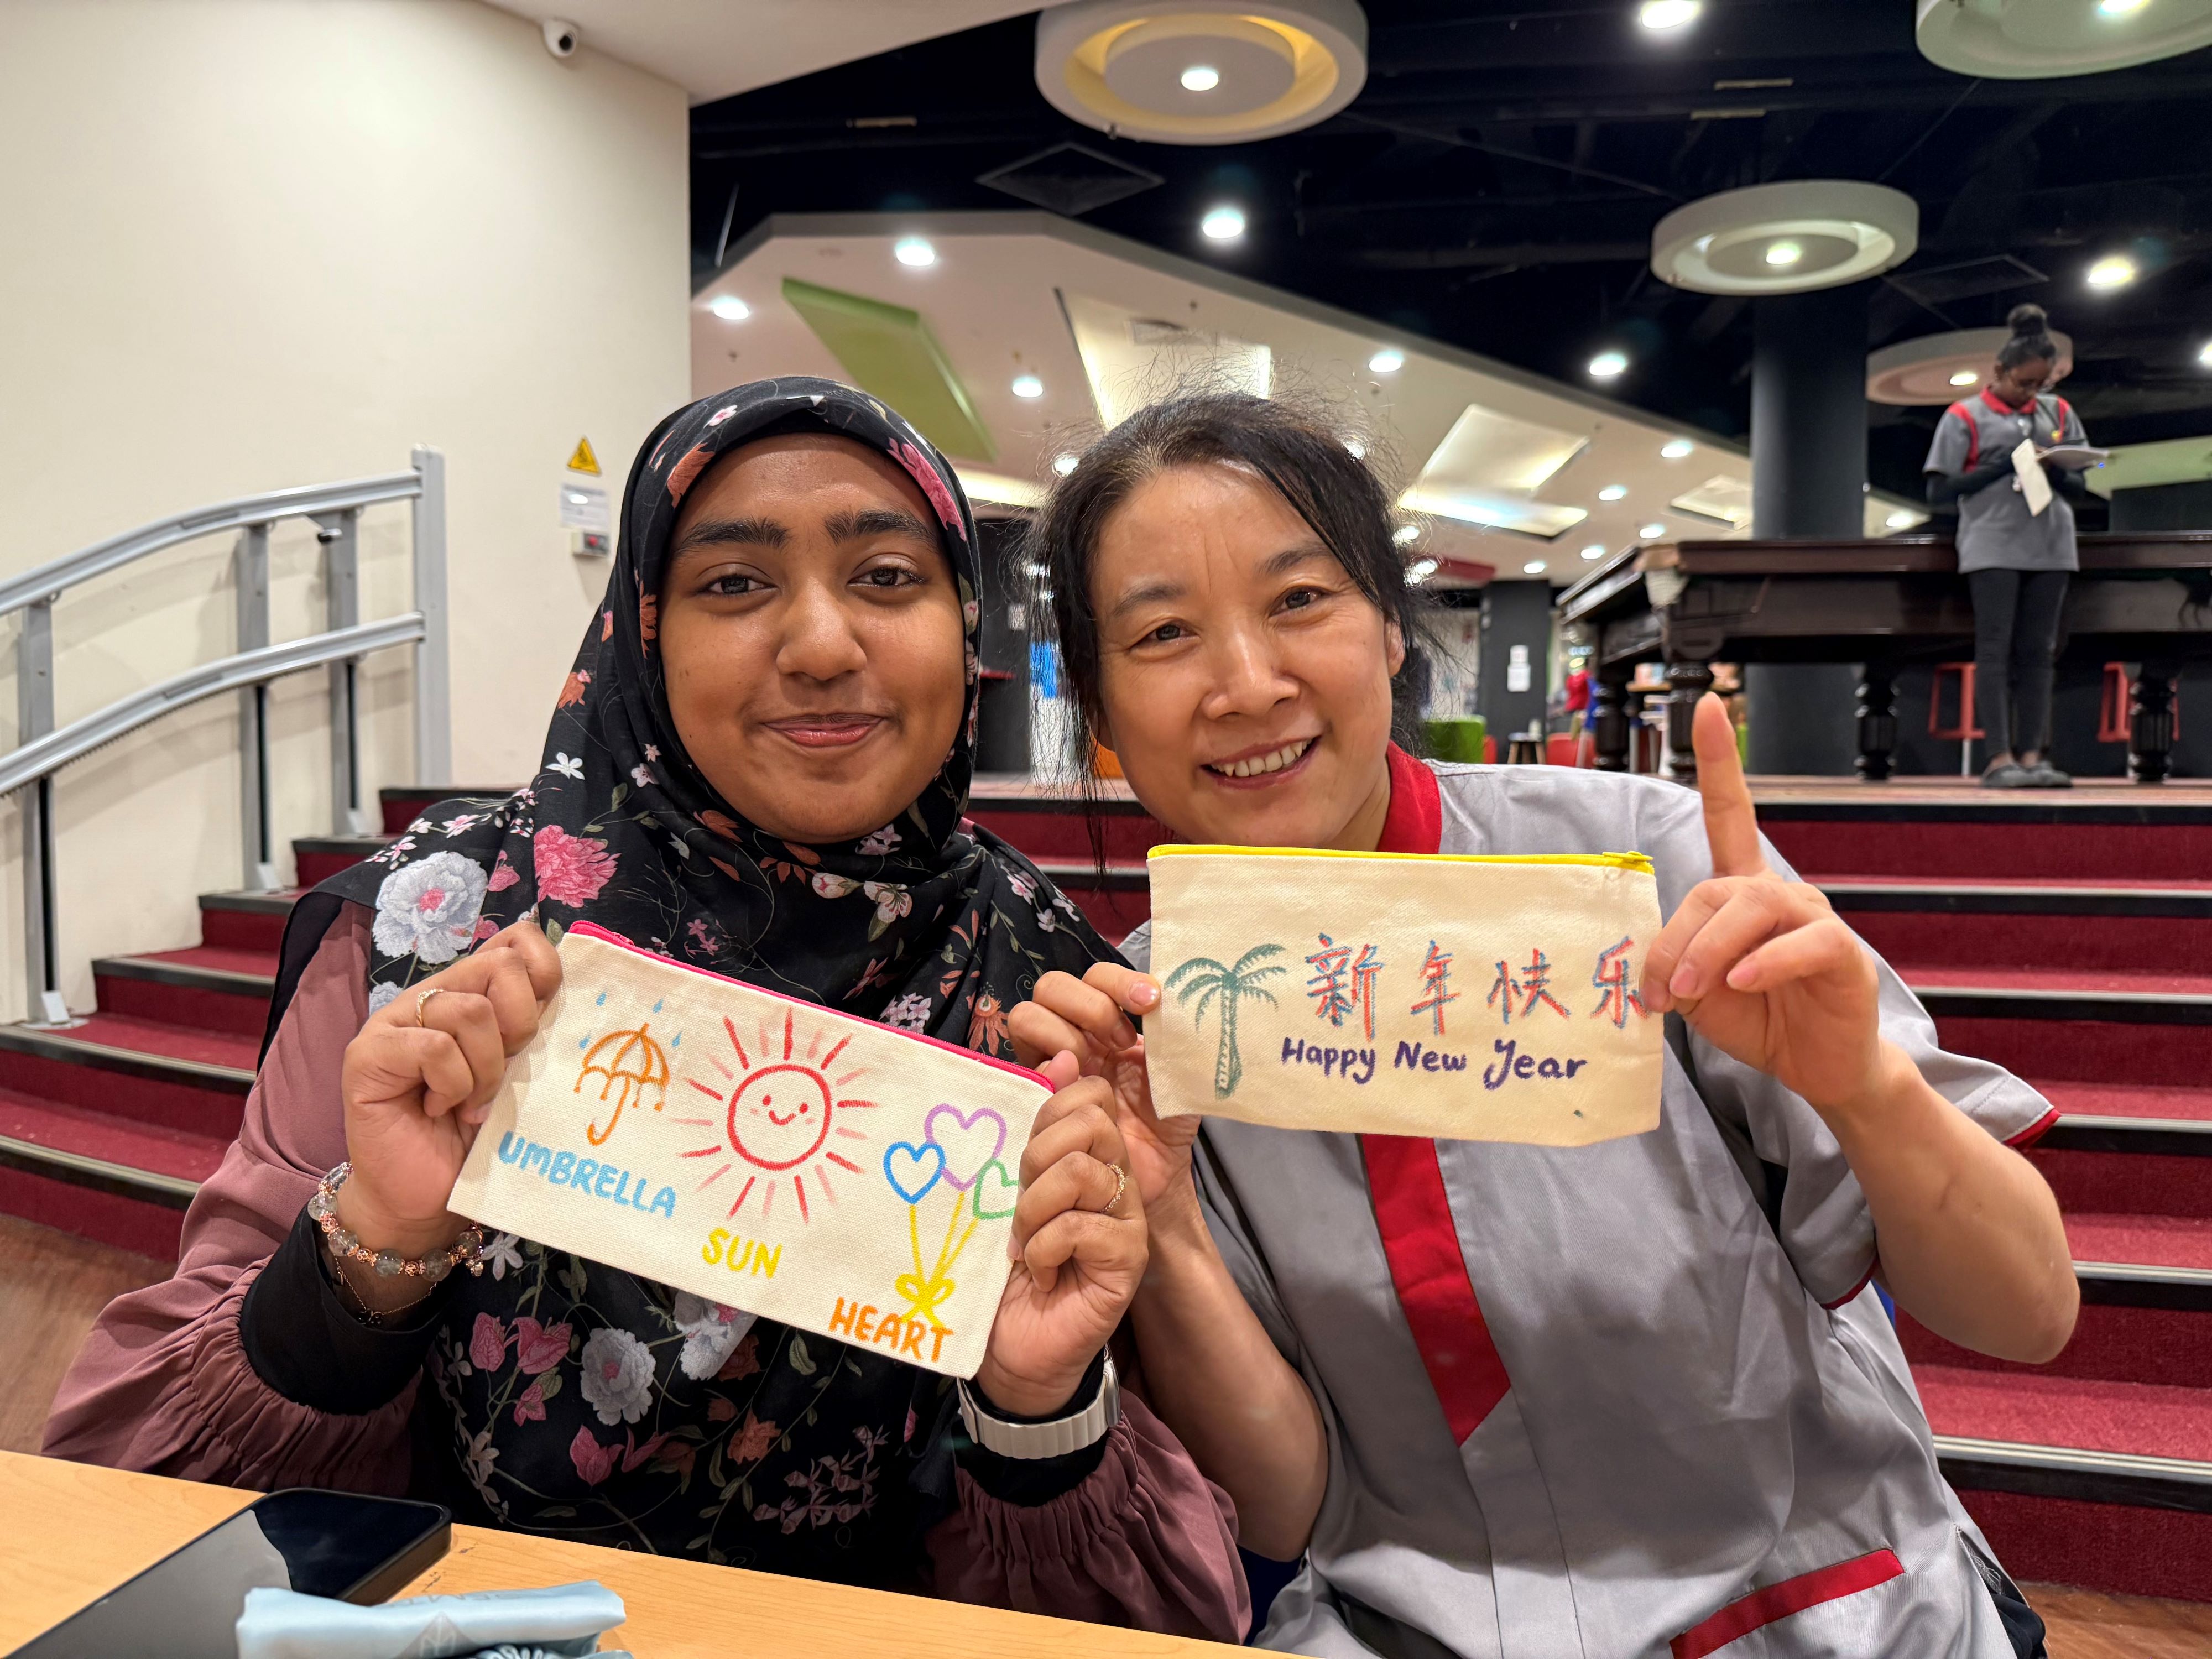 UMBRELLA
SUN
HEART
新年快乐
Happy New Year